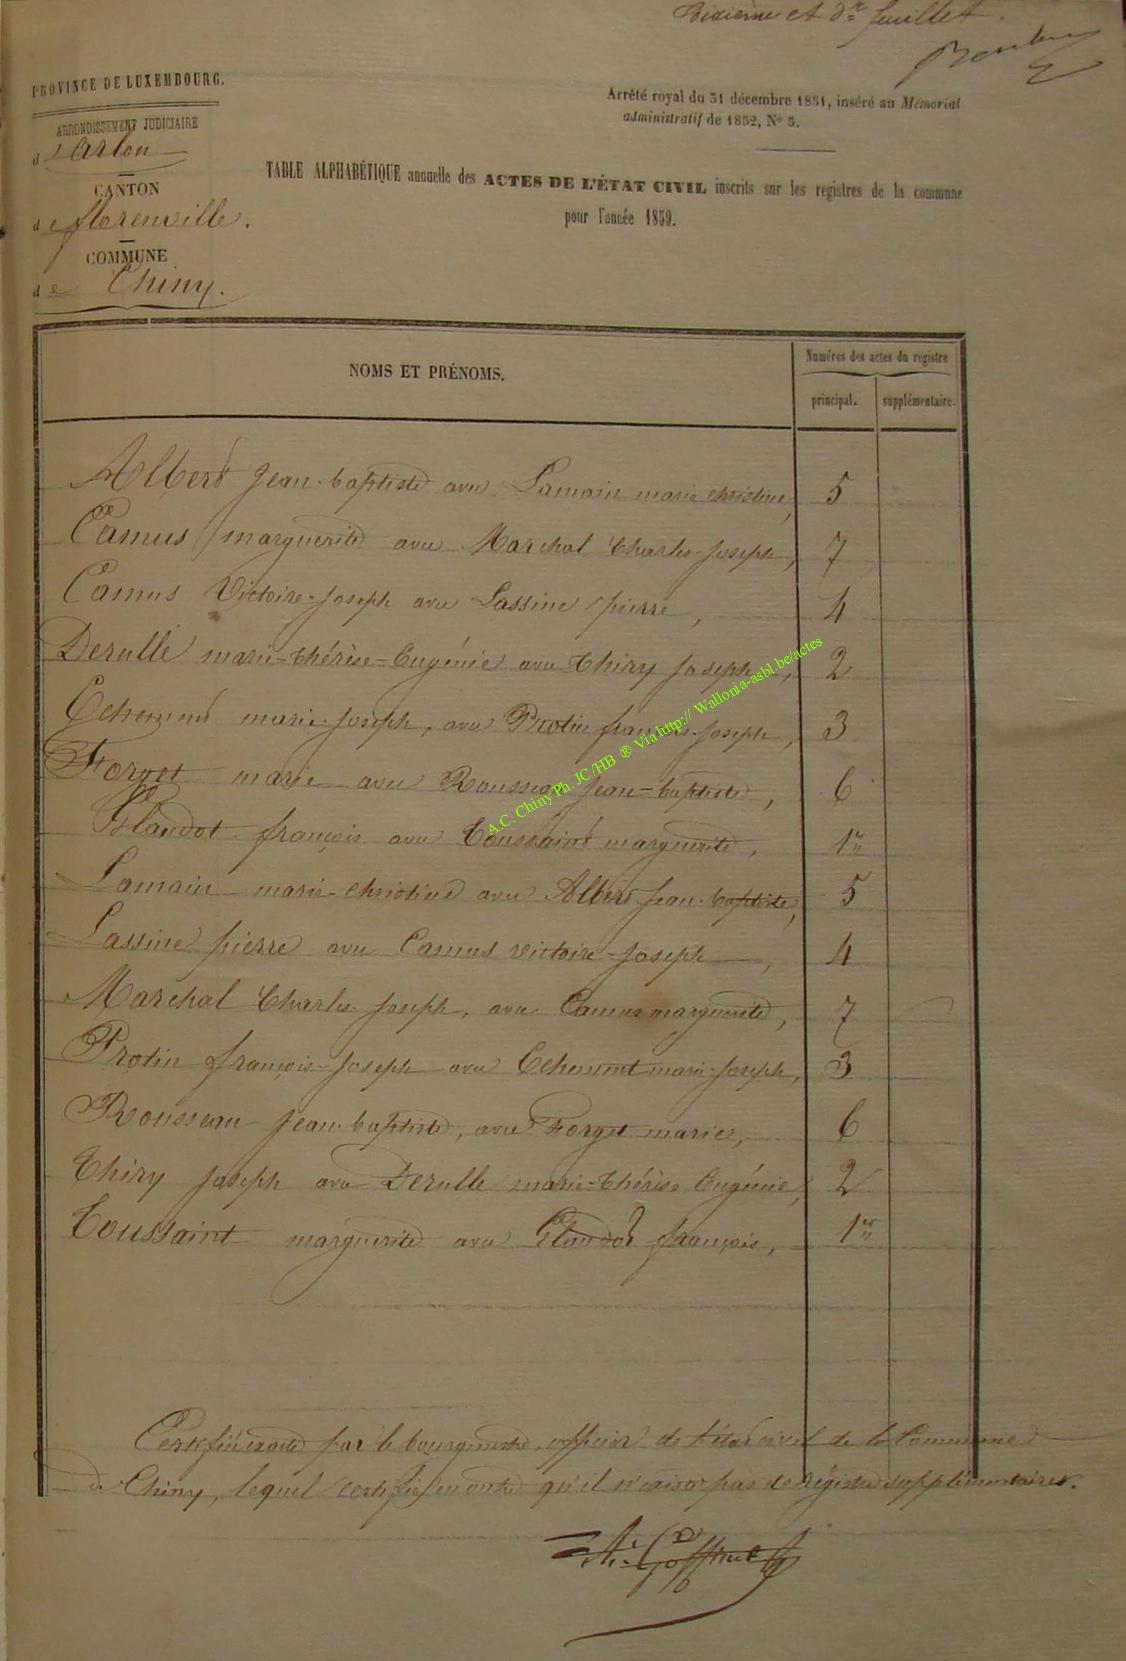 Dixième et dr feuillet.
PROVINCE DE LUXEMBOURG.
Arrêté royal du 31 décembre 1851, inséré au Mémorial
administratif de 1852, No 5.
ARRONDISSEMENT JUDICIAIRE
d'Arlon
TABLE ALPHABÉTIQUE annuelle des ACTES DE L'ÉTAT CIVIL inscrits sur les registres de la commune
pour l'année 1859.
CANTON
de florenville.
COMMUNE
de Chiny.
NOMS ET PRÉNOMS.
Numéros des actes du registre
principal. supplémentaire.
Albert Jean-baptiste avec Lamain marie christine, 5
Camus marguerite avec Marchal Charles-Joseph, 7
Camus Victoire-Joseph avec Lassine pierre, 4
Derulle marie-thérèse-Eugénie avec Thiry Joseph, 2
Echement marie-Joseph, avec Protin françois-Joseph, 3
Forget marie avec Rousseau Jean-baptiste, 6
Glaudot françois avec Toussaint marguerite, 1er
Lamain marie-christine avec Albert Jean-baptiste, 5
Lassine pierre avec Camus victoire-Joseph, 4
Marchal Charles Joseph, avec Camus marguerite, 7
Protin françois-Joseph avec Echement marie-Joseph, 3
Rousseau Jean-baptiste, avec Forget marie, 6
Thiry Joseph avec Derulle marie-thérèse Eugénie, 2
Toussaint marguerite avec Glaudot françois, 1er
A.C. Chiny Ph. JC/HB ® Via http:// Wallonia-asbl.be/actes
Certifié exacte par le bourgmestre, officier de l'état civil de la Commune
de Chiny, lequel certifie en outre qu'il n'existe pas de régistre supplémentaires.
A. Goffinet